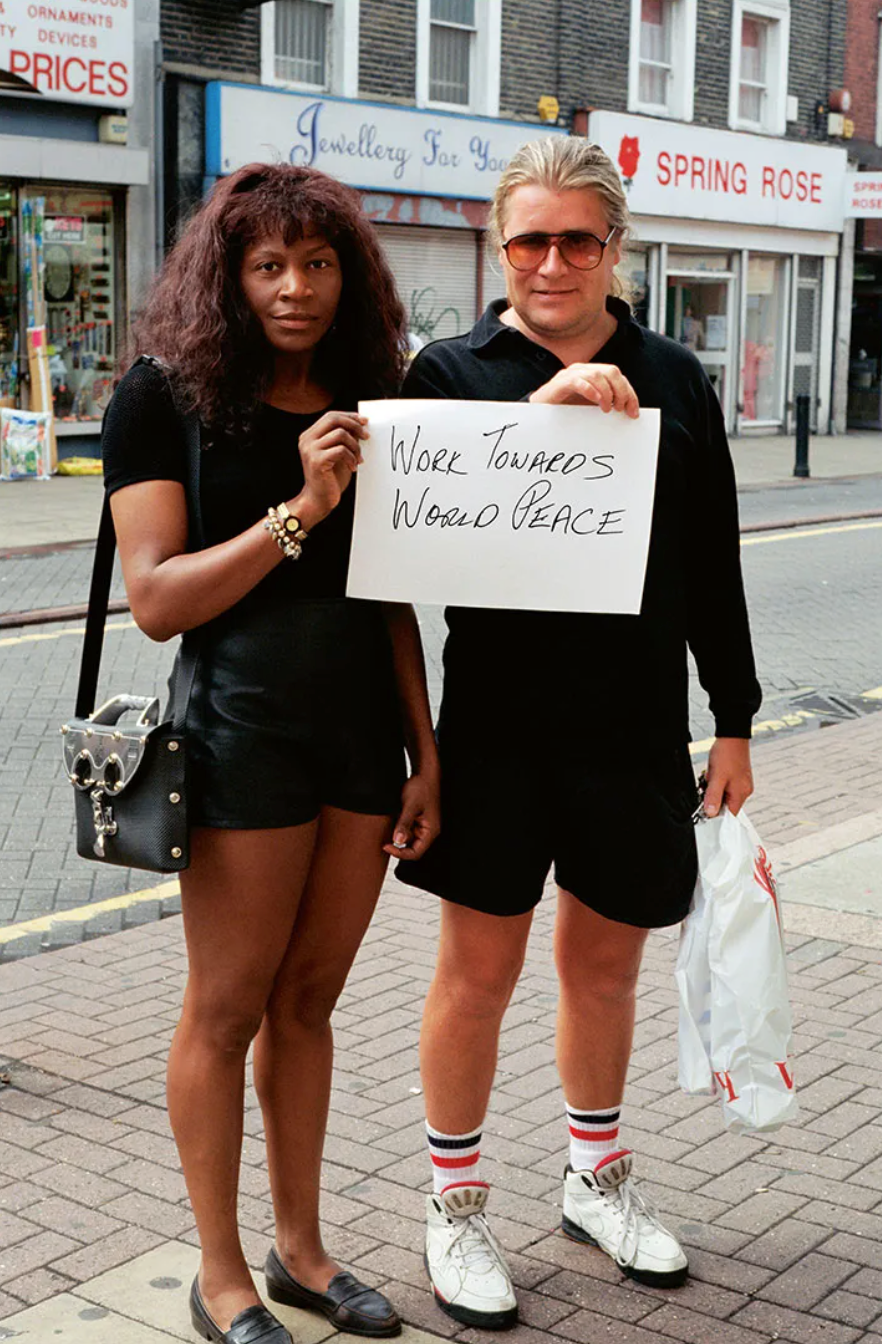 ORNAMENTS
DEVICES
PRICES
Jewellery For You
SPRING ROSE
SPRING
ROSE
WORK TOWARDS
WORLD PEACE